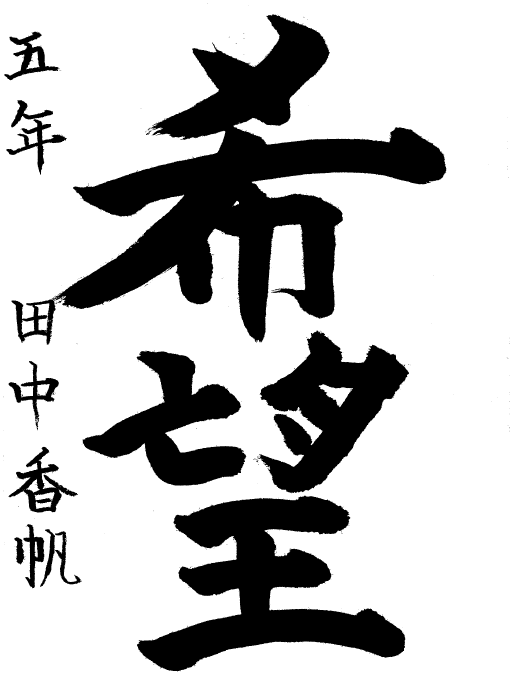 希望
五年 田中香帆